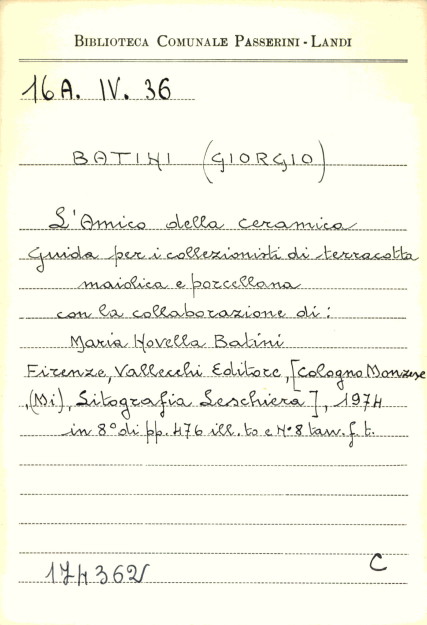 BIBLIOTECA COMUNALE PASSERINI - LANDI
16A. IV. 36
BATINI (GIORGIO)
L'Amico della ceramica
Guida per i collezionisti di terracotta
maiolica e porcellana
con la collaborazione di:
Maria Novella Batini
Firenze, Vallecchi Editore, [Cologno Monzese
,(Mi), Litografia Leschiera], 1974
in 8° di pp. 476 ill. to e N° 8 tav. f. t.
174362
C